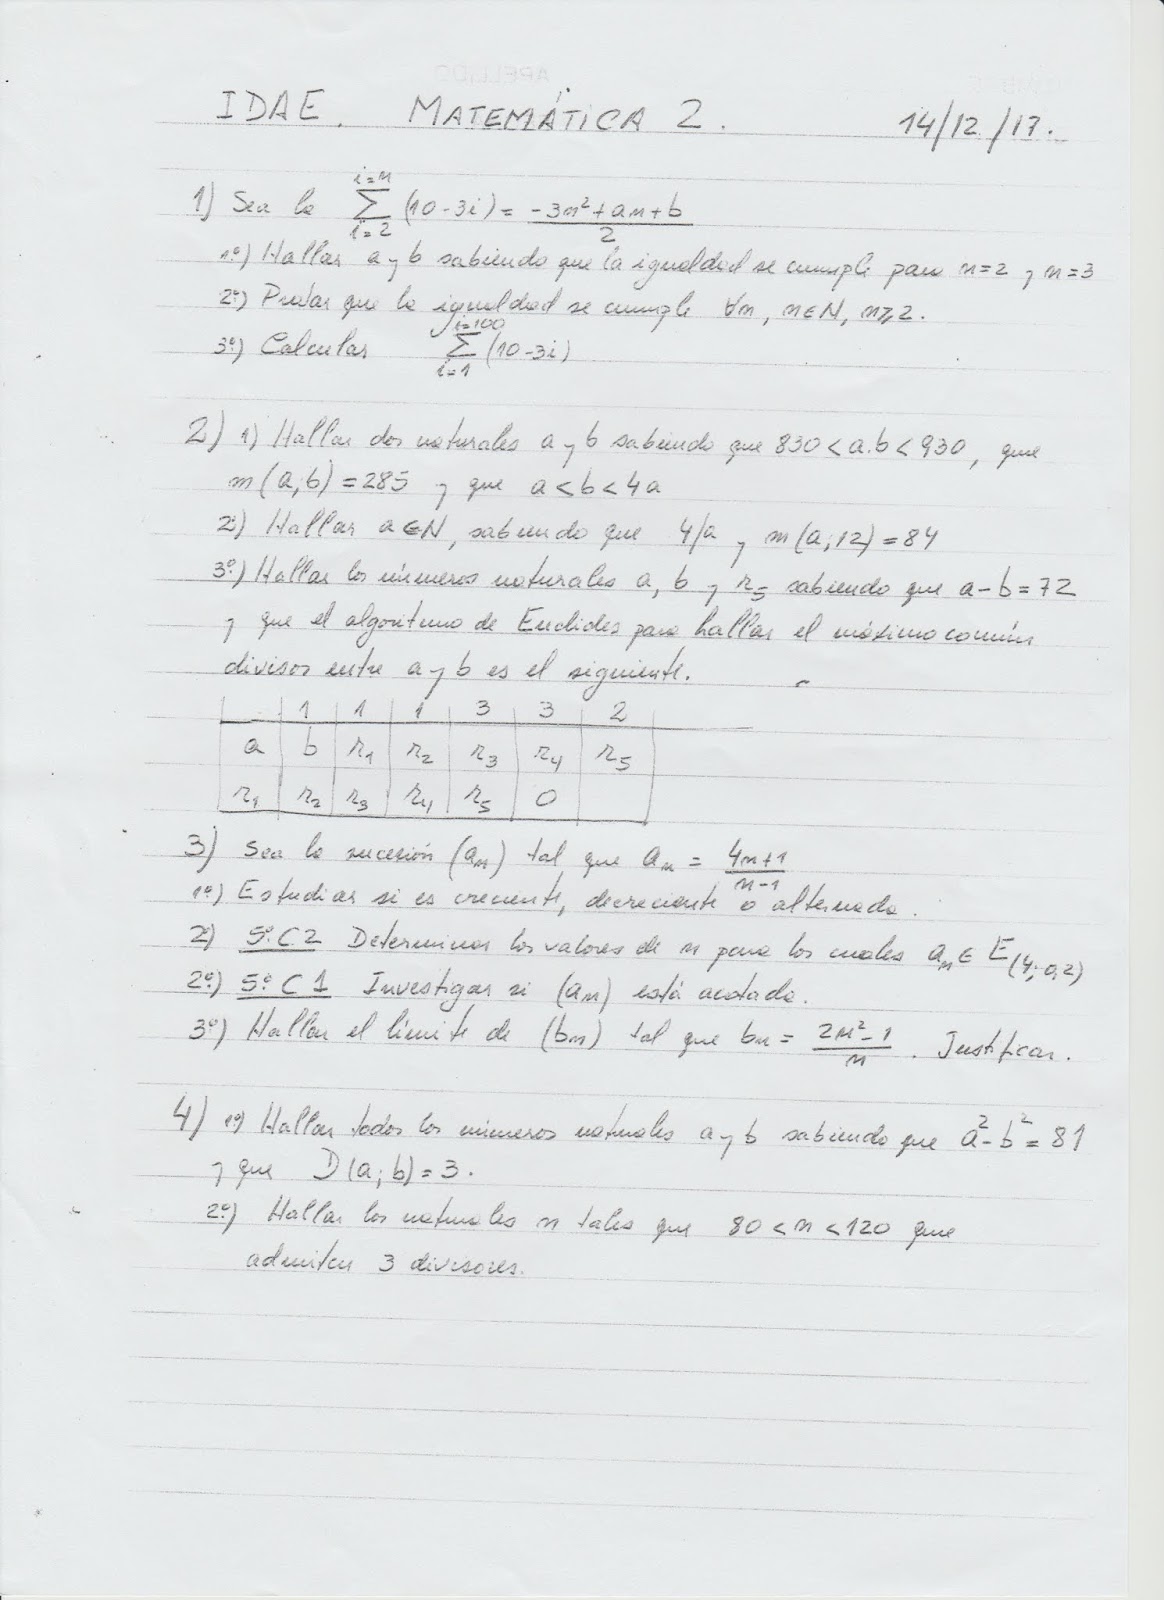 IDAE. MATEMÁTICA 2. 14/12/17.
1) Sea la \sum_{i=2}^{i=n} (10-3i) = \frac{-3n²+an+b}{2}
1º) Hallar a y b sabiendo que la igualdad se cumple para n=2 y n=3
2º) Probar que la igualdad se cumple ∀n, n∈N, n≥2.
3º) Calcular \sum_{i=1}^{i=100} (10-3i)
2) 1) Hallar dos naturales a y b sabiendo que 830<a.b<930, que
m(a;b)=285 y que a<b<4a
2º) Hallar a∈N, sabiendo que 4/a y m(a;12)=84
3º) Hallar los números naturales a, b y r₅ sabiendo que a-b=72
y que el algoritmo de Euclides para hallar el máximo común
divisor entre a y b es el siguiente.
1 1 1 3 3 2
a b r₁ r₂ r₃ r₄ r₅
r₁ r₂ r₃ r₄ r₅ 0
3) Sea la sucesión (aₙ) tal que aₙ = \frac{4n+1}{n-1}
1º) Estudiar si es creciente, decreciente o alternada.
2º) 5ºC2 Determinar los valores de n para los cuales aₙ∈E(4;0,2)
2º) 5ºC1 Investigar si (aₙ) está acotada.
3º) Hallar el límite de (bₙ) tal que bₙ = \frac{2n²-1}{n}. Justificar.
4) 1º) Hallar todos los números naturales a y b sabiendo que a²-b²=81
y que D(a;b)=3.
2º) Hallar los naturales n tales que 80<n<120 que
admiten 3 divisores.